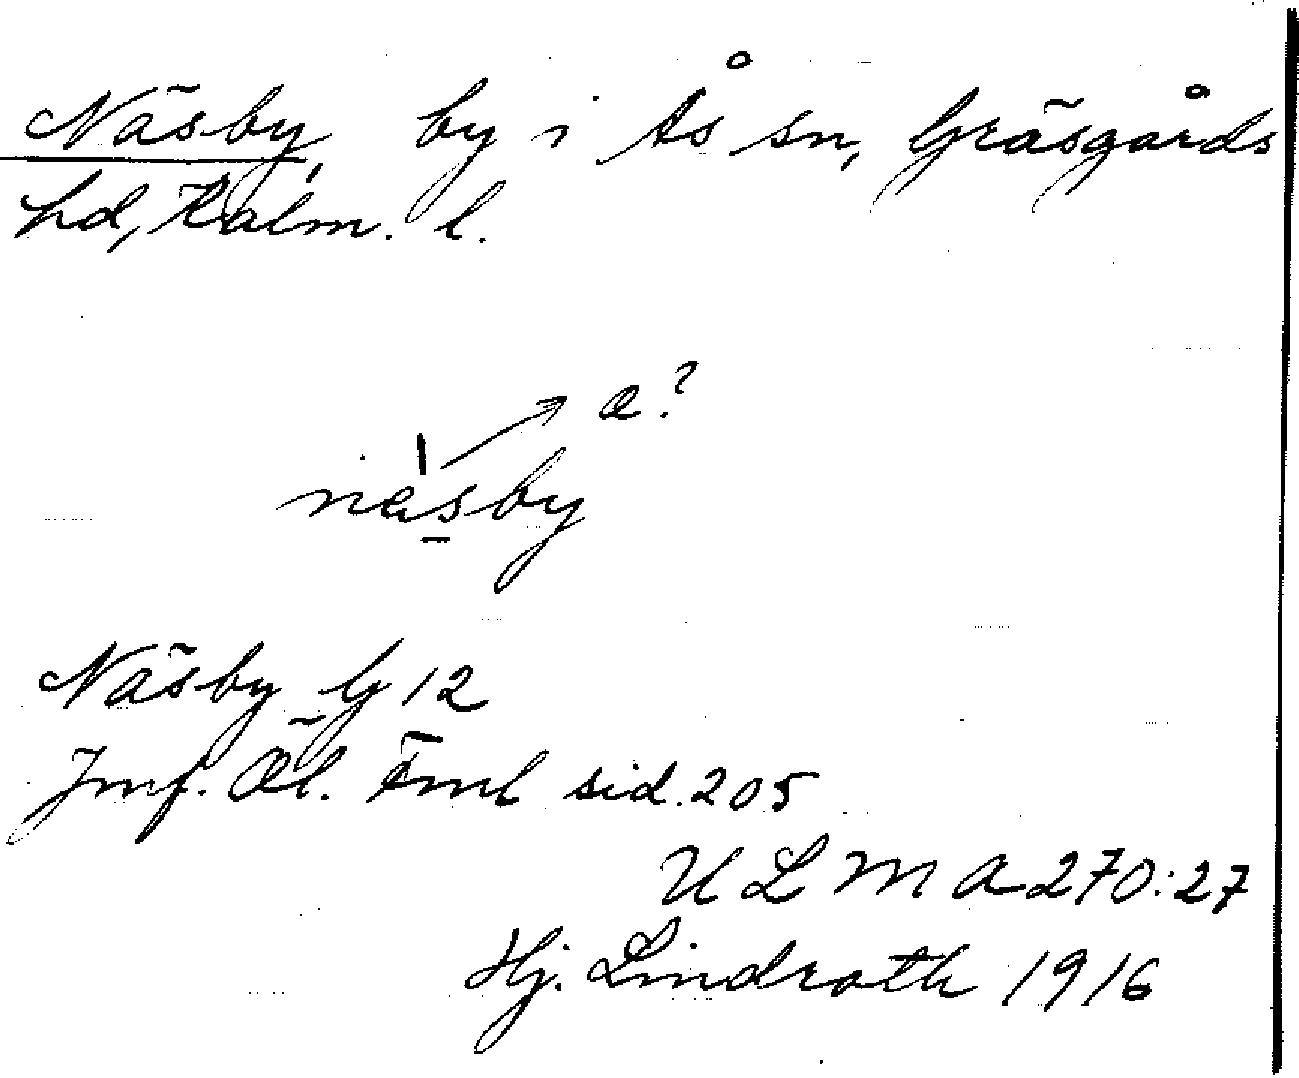 Näsby, by i Ås sn, Gräsgårds
hd, Kalm. l.
a?
näsby
Näsby G 12
Jmf. Öl. Fml sid. 205
ULMA 270:27
Hj. Lindroth 1916